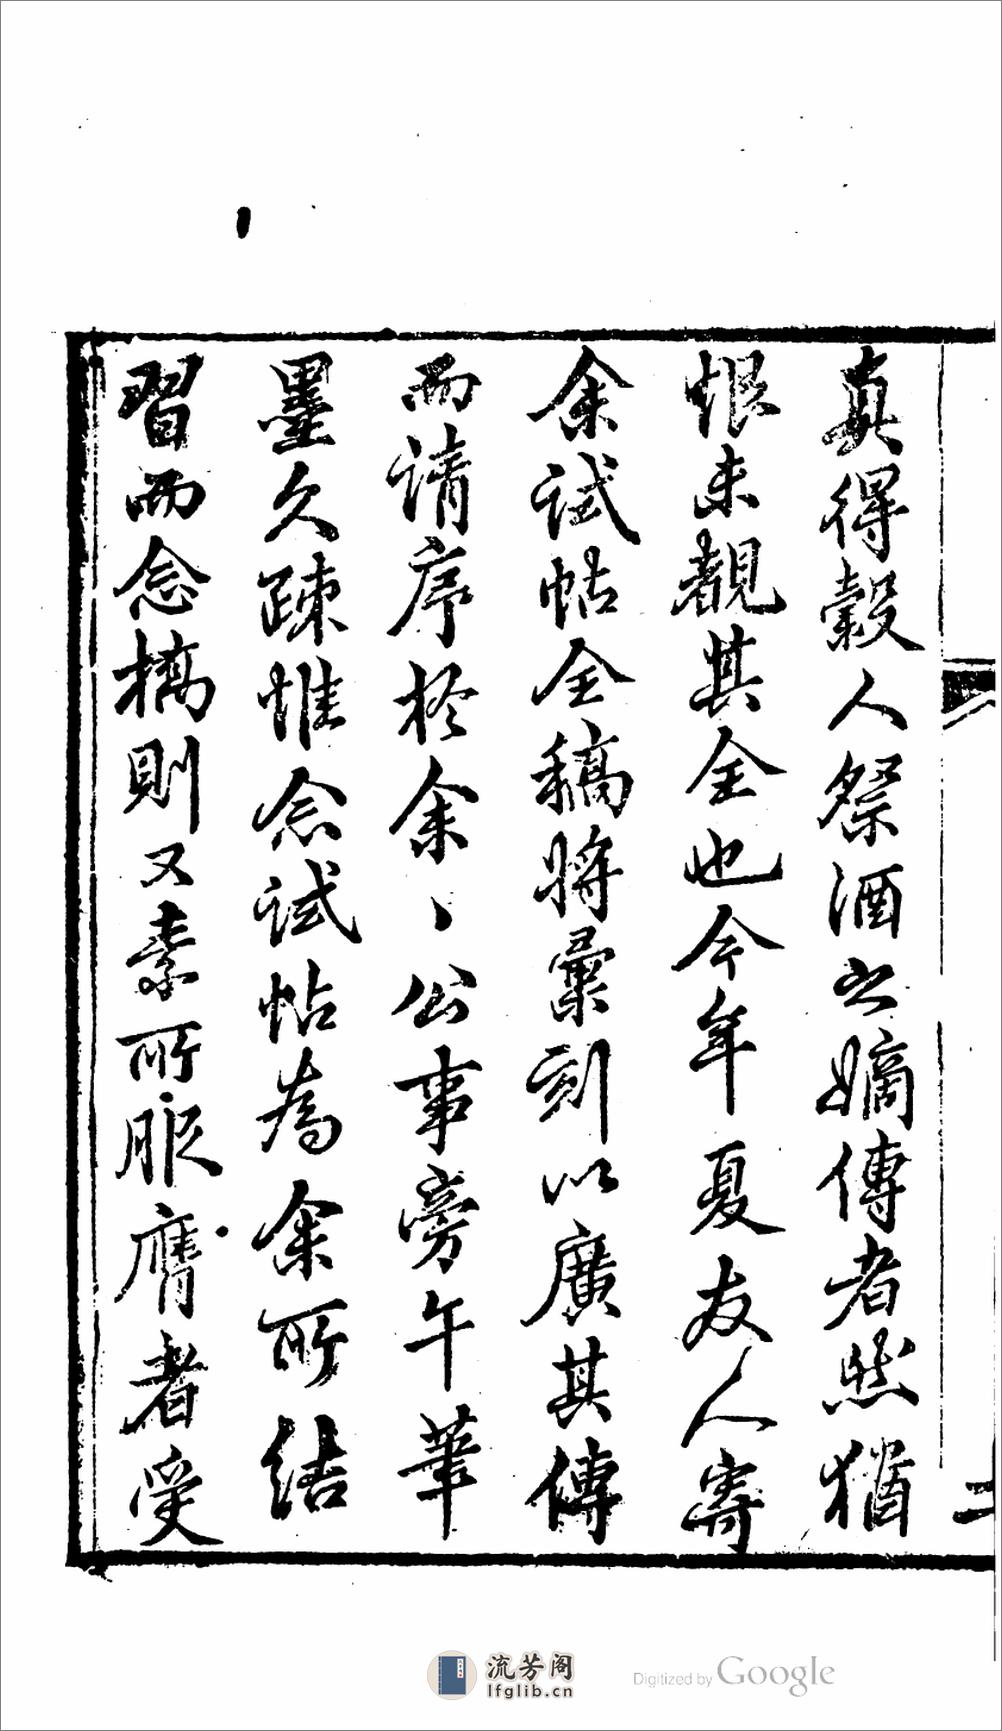 真得穀人祭酒之嫡傳者然猶
恨未覩其全也今年夏友人寄
余試帖全稿將彙刻以廣其傳
而請序於余、公事旁午筆
墨久疎惟念試帖為余所結
習而念橋則又素所服膺者受
二
流芳阁
lfglib.cn
Digitized by Google